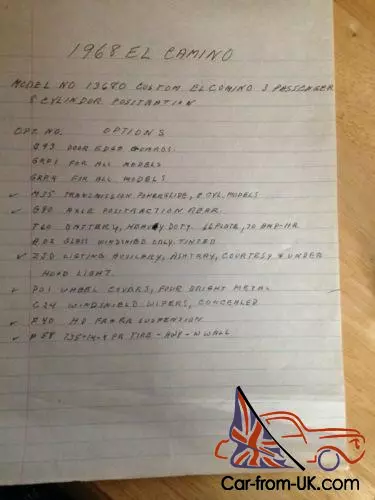 1968 EL CAMINO
MODEL NO 13680 CUSTOM ELCAMINO 3 PASSENGER
8 CYLINDOR POSITRATION
OPT. NO. OPTIONS
DOOR EDGE GUARDS.
GRP1 FOR ALL MODELS
GRP4 FOR ALL MODELS
✓ M35 TRANSMISSION POWERGLIDE, 8 CYL. MODELS
✓ G80 AXLE POSITRACTION REAR.
T60 BATTERY, HEAVY DUTY. 66 PLATE, 70 AMP-HR
A02 GLASS WINDSHIELD ONLY. TINTED
✓ ZJ0 AUXILARY, ASHTRAY, COURTESY & UNDER
HOOD LIGHT.
✓ P01 WHEEL COVERS, FOUR BRIGHT METAL
C24 WINDSHIELD WIPERS, CONCEALED
✓ F40 H.D SUSPENTION
✓ P58 735-14-4 PR TIRE - W WALL
Car-from-UK.com